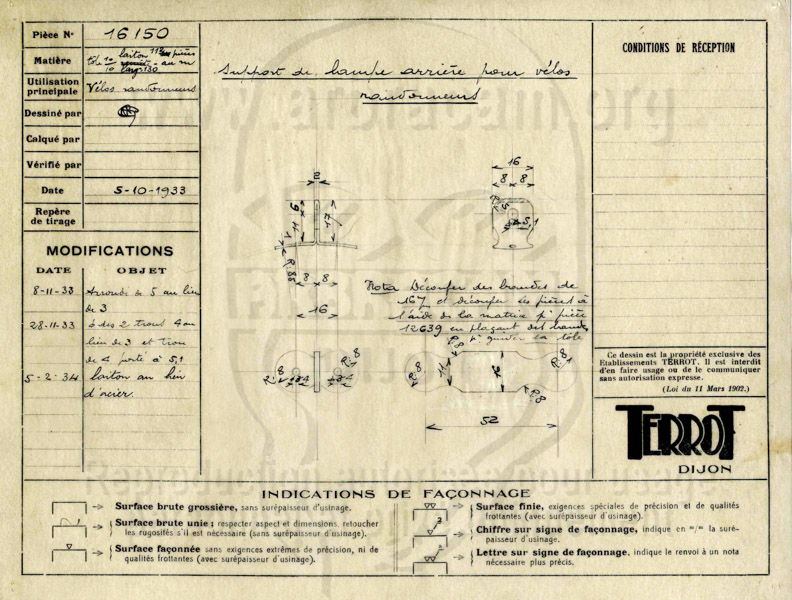 Pièce N° 16150
Matière
tôle 10/10 laiton
au m
Utilisation principale Vélos randonneurs
Dessiné par
Calqué par
Vérifié par
Date 5-10-1933
Repère de tirage
MODIFICATIONS
DATE OBJET
8-11-33 Arrondi de 5 au lieu
de 3
28-11-33 ô des 2 trous 4 au
lieu de 3 et trou
de 4 porté à 5,1
5-2-34 laiton au lieu
d'acier.
Support de lampe arrière pour vélos
randonneurs
2
9
11
17
1
R.85
8 8
16
16
8 8
R.5
5,1
Nota Découper des bandes de
167 et découper les pièces à
l'aide de la matrice pr pièce
12639 en plaçant des bandes
pr guider la tôle
R.8
R.8
R.8
R.8
R.8
R.8
11
52
CONDITIONS DE RÉCEPTION
Ce dessin est la propriété exclusive des
Etablissements TERROT. Il est interdit
d'en faire usage ou de le communiquer
sans autorisation expresse.
(Loi du 11 Mars 1902.)
TERROT
DIJON
INDICATIONS DE FAÇONNAGE
Surface brute grossière, sans surépaisseur d'usinage.
Surface brute unie ; respecter aspect et dimensions, retoucher
les rugosités s'il est nécessaire (sans surépaisseur d'usinage).
Surface façonnée sans exigences extrêmes de précision, ni de
qualités frottantes (avec surépaisseur d'usinage).
Surface finie, exigences spéciales de précision et de qualités
frottantes (avec surépaisseur d'usinage).
3
Chiffre sur signe de façonnage, indique en m/m la suré-
paisseur d'usinage.
Lettre sur signe de façonnage, indique le renvoi à un nota
nécessaire plus précis.